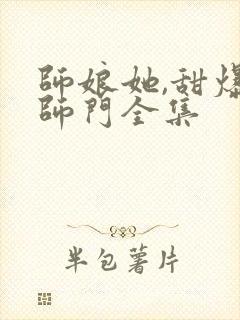 師娘她,甜爆
師門全集
半包薯片